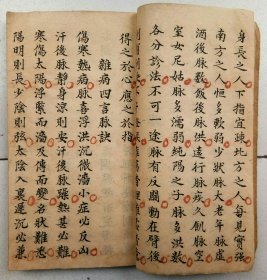 身長之人下指宜疎北方之人每見實強
南方之人恒多軟弱少壯脉大老年脉虛
酒後脉數飯後脉洪遠行脉疾久飢脉空
室女尼姑脉多濡弱純陽之子脉多洪數
各分診法不可一途脉有反關動在臂後
得之於心應之於指
雜病四言脉訣
傷寒熱病脉喜浮洪沉微濇小症反必凶
汗後脉靜身涼則安汗後脉躁熱甚必難
寒傷太陽浮緊而濇及傳而變名狀難悉
陽明則長少陰則弦太陰入裏遲沉必兼